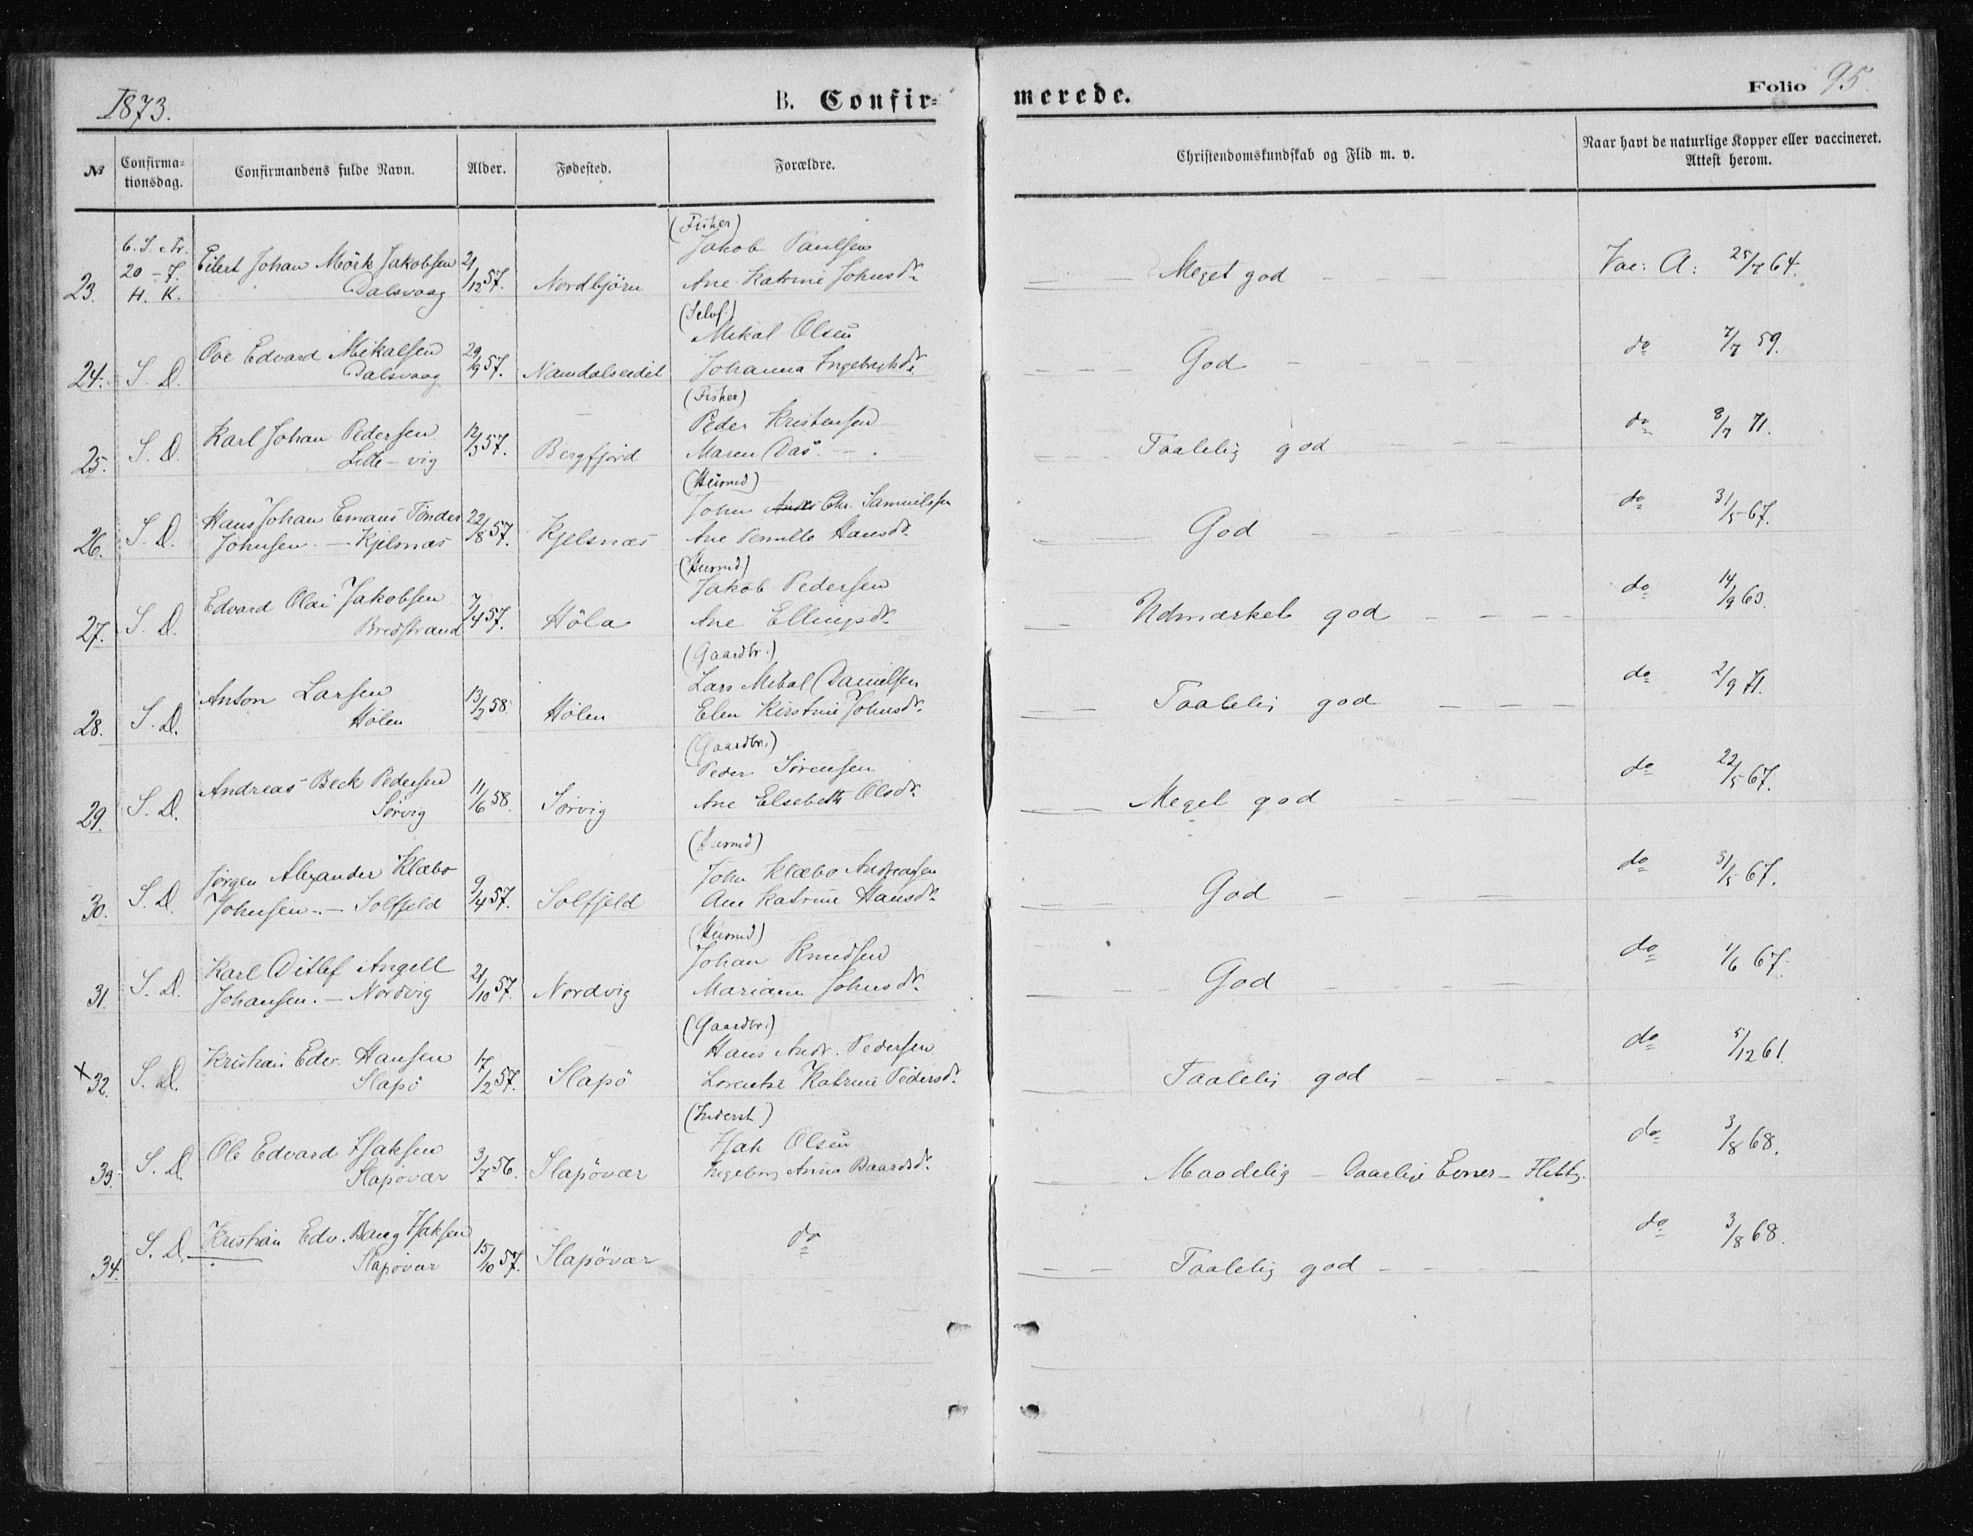 1873.
B. Confir-
merede.
Folio 95.
№
Confirma-
tionsdag.
Confirmandens fulde Navn.
Alder.
Fødested.
Forældre.
Christendomskundskab og Flid m. v.
Naar havt de naturlige Kopper eller vaccineret.
Attest herom.
(Fisker)
6. S. e. Tr. Jakob Paulsen
20 - 7. Eilert Johan Mörk Jakobsen 21/12 57. Meget god Vac: A: 25/7 64.
23. H. K. Dalsvaag Nordbjörn Ane Katrine Johnsdr.
(Selvf.)
Ove Edvard Mikalsen 29/9 57. Mikal Olsen do 7/7 59.
24. S. D. Dalsvaag Namdalseidet Johanna Ingebrigtsdr. God
(Fisker)
Karl Johan Pedersen 12/3 57. Peder Kristensen do 8/7 71.
25. S. D. Lille-vig Bergfjord Maren Das. Taalelig god
(Husmd)
Hans Johan Emaus Tönder 22/8 57. John Chr. Samuelsen do 31/5 67.
26. S. D. Johnsen. - Kjelsnæs Kjelsnæs Ane Pernille Hansdr. God
(Husmd)
Edvard Olai Jakobsen 7/4 57. Jakob Pedersen do 14/9 63.
27. S. D. Bredstrand Höla Ane Ellingsdr. Udmærket god
(Gaardbr.)
Anton Larsen 13/2 58. Lars Mikal Danielsen do 2/9 71.
28. S. D. Hölen Hölen Elen Kirstine Johnsdr. Taalelig god
(Gaardbr.)
Andreas Beck Pedersen 11/6 58. Peder Sörensen do 22/5 67.
29. S. D. Sörvig Sörvig Ane Elsebeth Olsdr. Meget god
(Husmd)
Jörgen Alexander Klæbo 9/4 57. John Klæbo Andreasen do 31/5 67.
30. S. D. Johnsen. - Solfjeld Solfjeld Ane Katrine Hansdr. God
(Husmd)
Karl Ditlef Angell 21/10 57. Johan Knudsen do 1/6 67.
31. S. D. Johansen. - Nordvig Nordvig Mariane Johnsdr. God
(Gaardbr.)
Kristian Edv. Hansen 17/2 57. Hans Andr. Pedersen do 5/12 61.
x 32. S. D. Slapö Slapö Lorentse Katrine Pedersdr. Taalelig god
(Inderst)
Ole Edvard Isaksen 3/7 56. Isak Olsen do 3/8 68.
33. S. D. Slapövær Slapövær Ingeborg Anna Baardsdr. Maadelig - Daarlige Evner - Flittig.
Kristian Edv. Bang Isaksen 15/10 57. do do 3/8 68.
34. S. D. Slapövær Slapövær Taalelig god